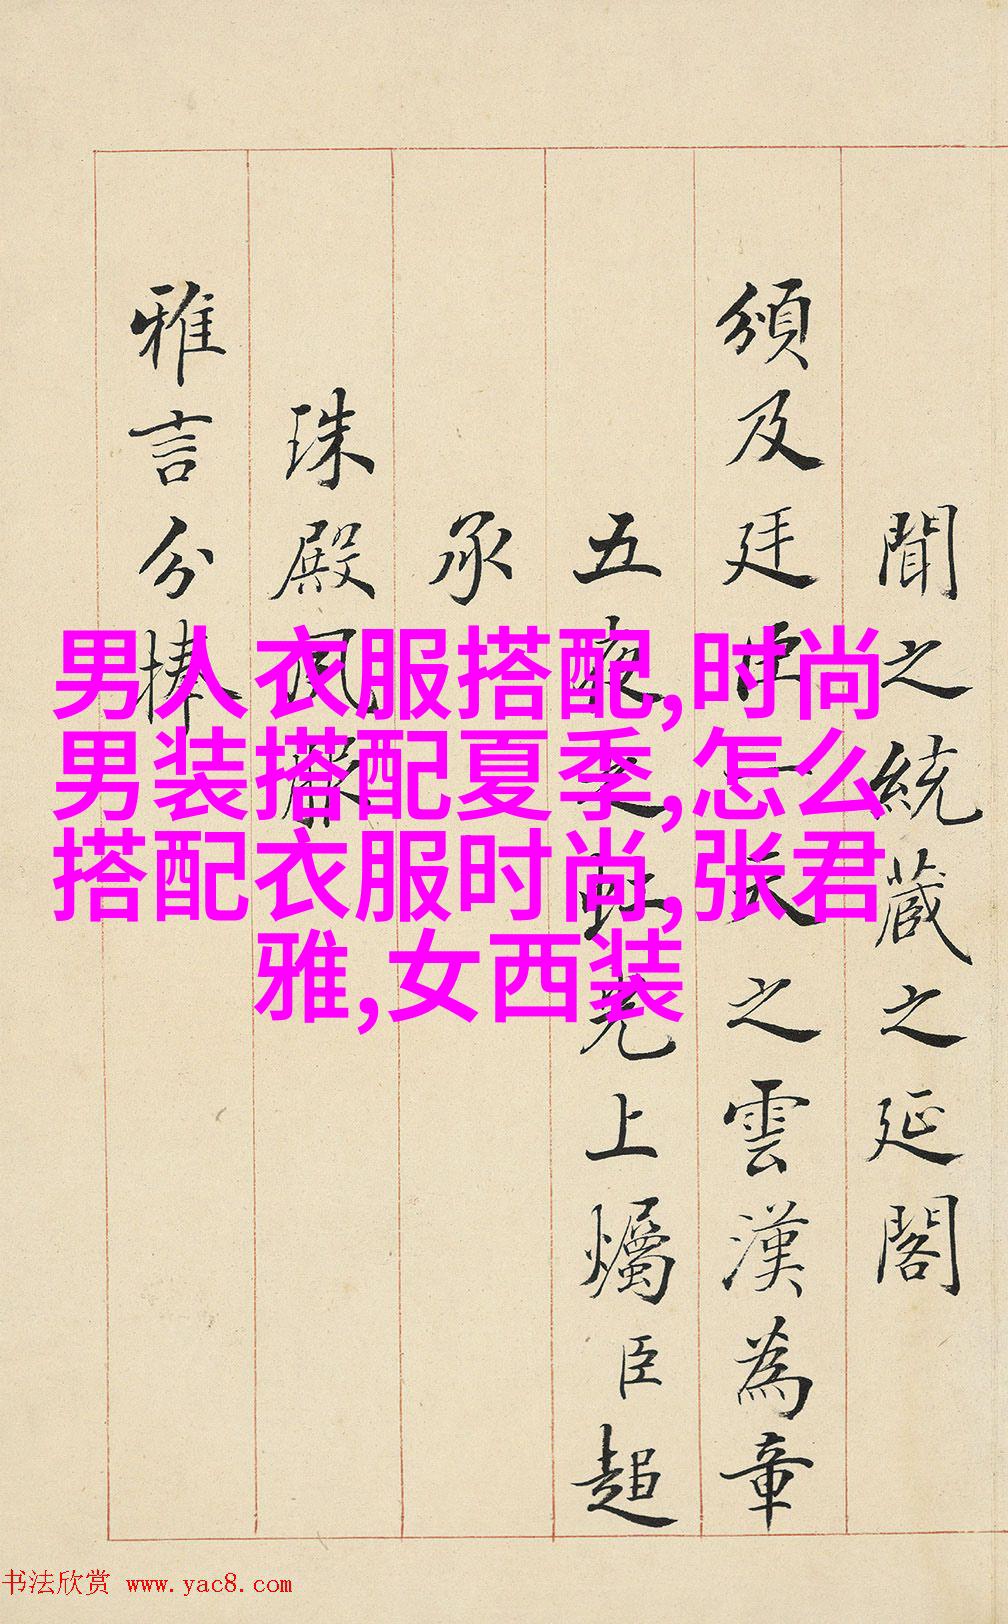 男人衣服搭配,时尚
男装搭配夏季,怎么
搭配衣服时尚,张君
雅,女西装
聞之統藏之延閣
頒及廷臣一天之雲漢為章
五夜之虹光上爥臣超
承
珠殿風嚴
雅言分捧
书法欣赏 www.yac8.com